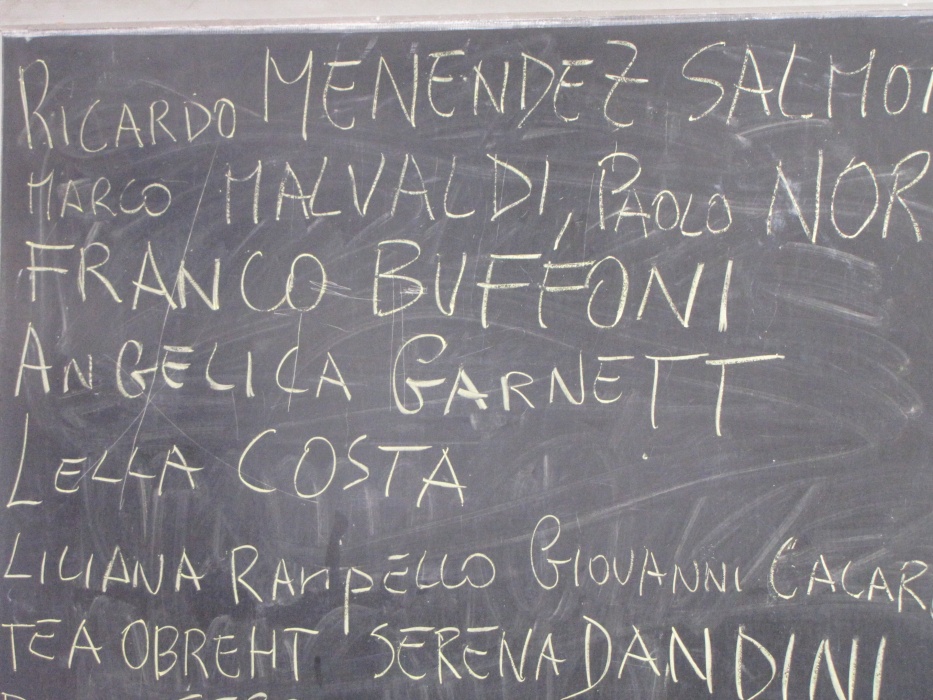 RICARDO MENENDEZ SALMO
MARCO MALVALDI, PAOLO NOR
FRANCO BUFFONI
ANGELICA GARNETT
LELLA COSTA
LILIANA RAMPELLO GIOVANNI CACAR
TEA OBREHT SERENA DANDINI